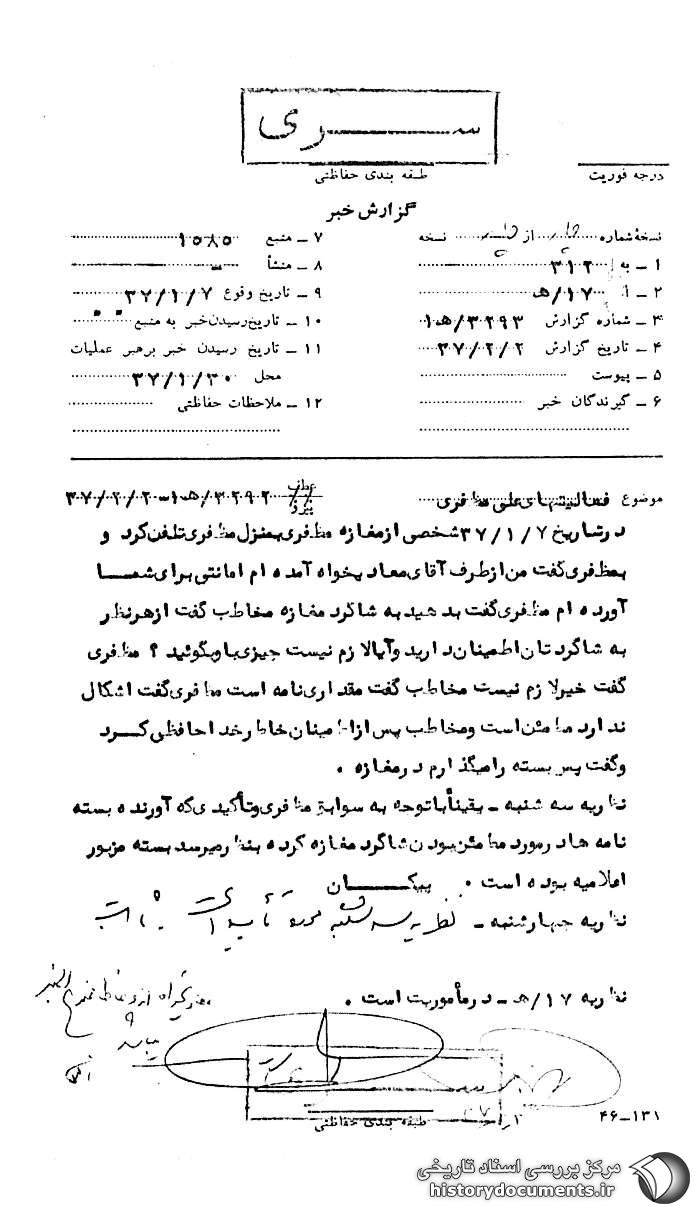 سری
طبقه بندی حفاظتی
درجه فوریت
گزارش خبر
نسخهٔ شماره از نسخه
۱ ـ به ۳۱۲
۲ ـ از ۱۷/هـ
۳ ـ شماره گزارش ۳۲۹۳/هـ۱
۴ ـ تاریخ گزارش ۳۷/۲/۲
۵ ـ پیوست
۶ ـ گیرندگان خبر
۷ ـ منبع ۱۰۸۰
۸ ـ منشأ ـ
۹ ـ تاریخ وقوع ۳۷/۱/۷
۱۰ ـ تاریخ رسیدن خبر به منبع
۱۱ ـ تاریخ رسیدن خبر برهبر عملیات
محل ۳۷/۱/۳۰
۱۲ ـ ملاحظات حفاظتی
موضوع فعالیتهای علی مظفری
عطف
پیرو ۳۲۹۲/هـ۱-۳۷/۲/۲۰
در تاریخ ۳۷/۱/۷ شخصی از مغازه مظفری بمنزل مظفری تلفن کرد و
بمظفری گفت من از طرف آقای معادیخواه آمده ام امانتی برای شما
آورده ام مظفری گفت بدهید به شاگرد مغازه مخاطب گفت از هر نظر
به شاگردتان اطمینان دارید و آیا لازم نیست چیزی باو بگوئید ؟ مظفری
گفت خیر لازم نیست مخاطب گفت مقداری نامه است مظفری گفت اشکال
ندارد مطمئن است و مخاطب پس از اطمینان خاطر خداحافظی کرد
و گفت پس بسته را میگذارم در مغازه .
نظریه سه شنبه ـ یقیناً باتوجه به سوابق مظفری و تأکیدی که آورنده بسته
نامه ها در مورد مطمئن بودن شاگرد مغازه کرده بنظر میرسد بسته مزبور
اعلامیه بوده است . پیکان
نظریه چهارشنبه ـ نظریه سه شنبه مورد تأیید است
نظریه ۱۷/هـ ـ در مأموریت است .
طبقه بندی حفاظتی
۴۶-۱۳۱
مرکز بررسی اسناد تاریخی
historydocuments.ir